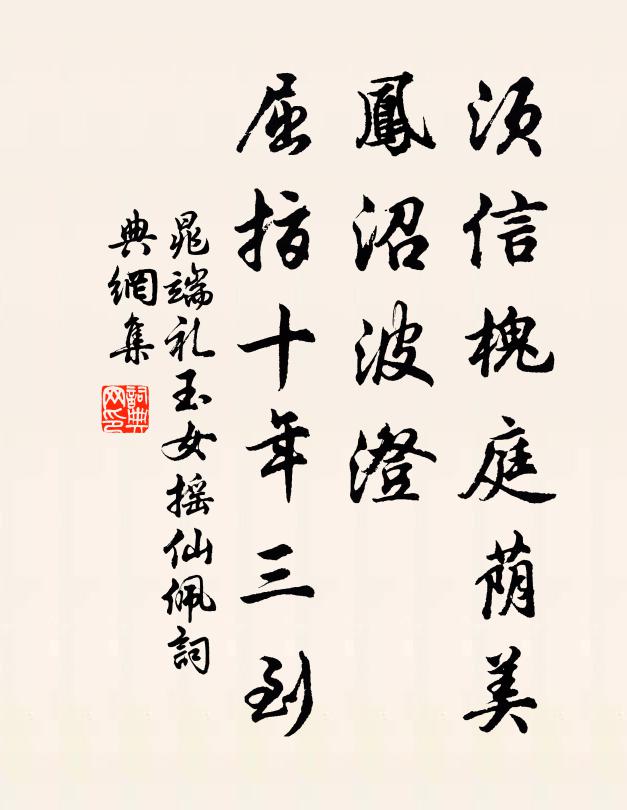 须信槐庭荫美
鳳沼波澄
屈指十年三到
晁端礼玉女摇仙佩詞
典網集
詞典网印